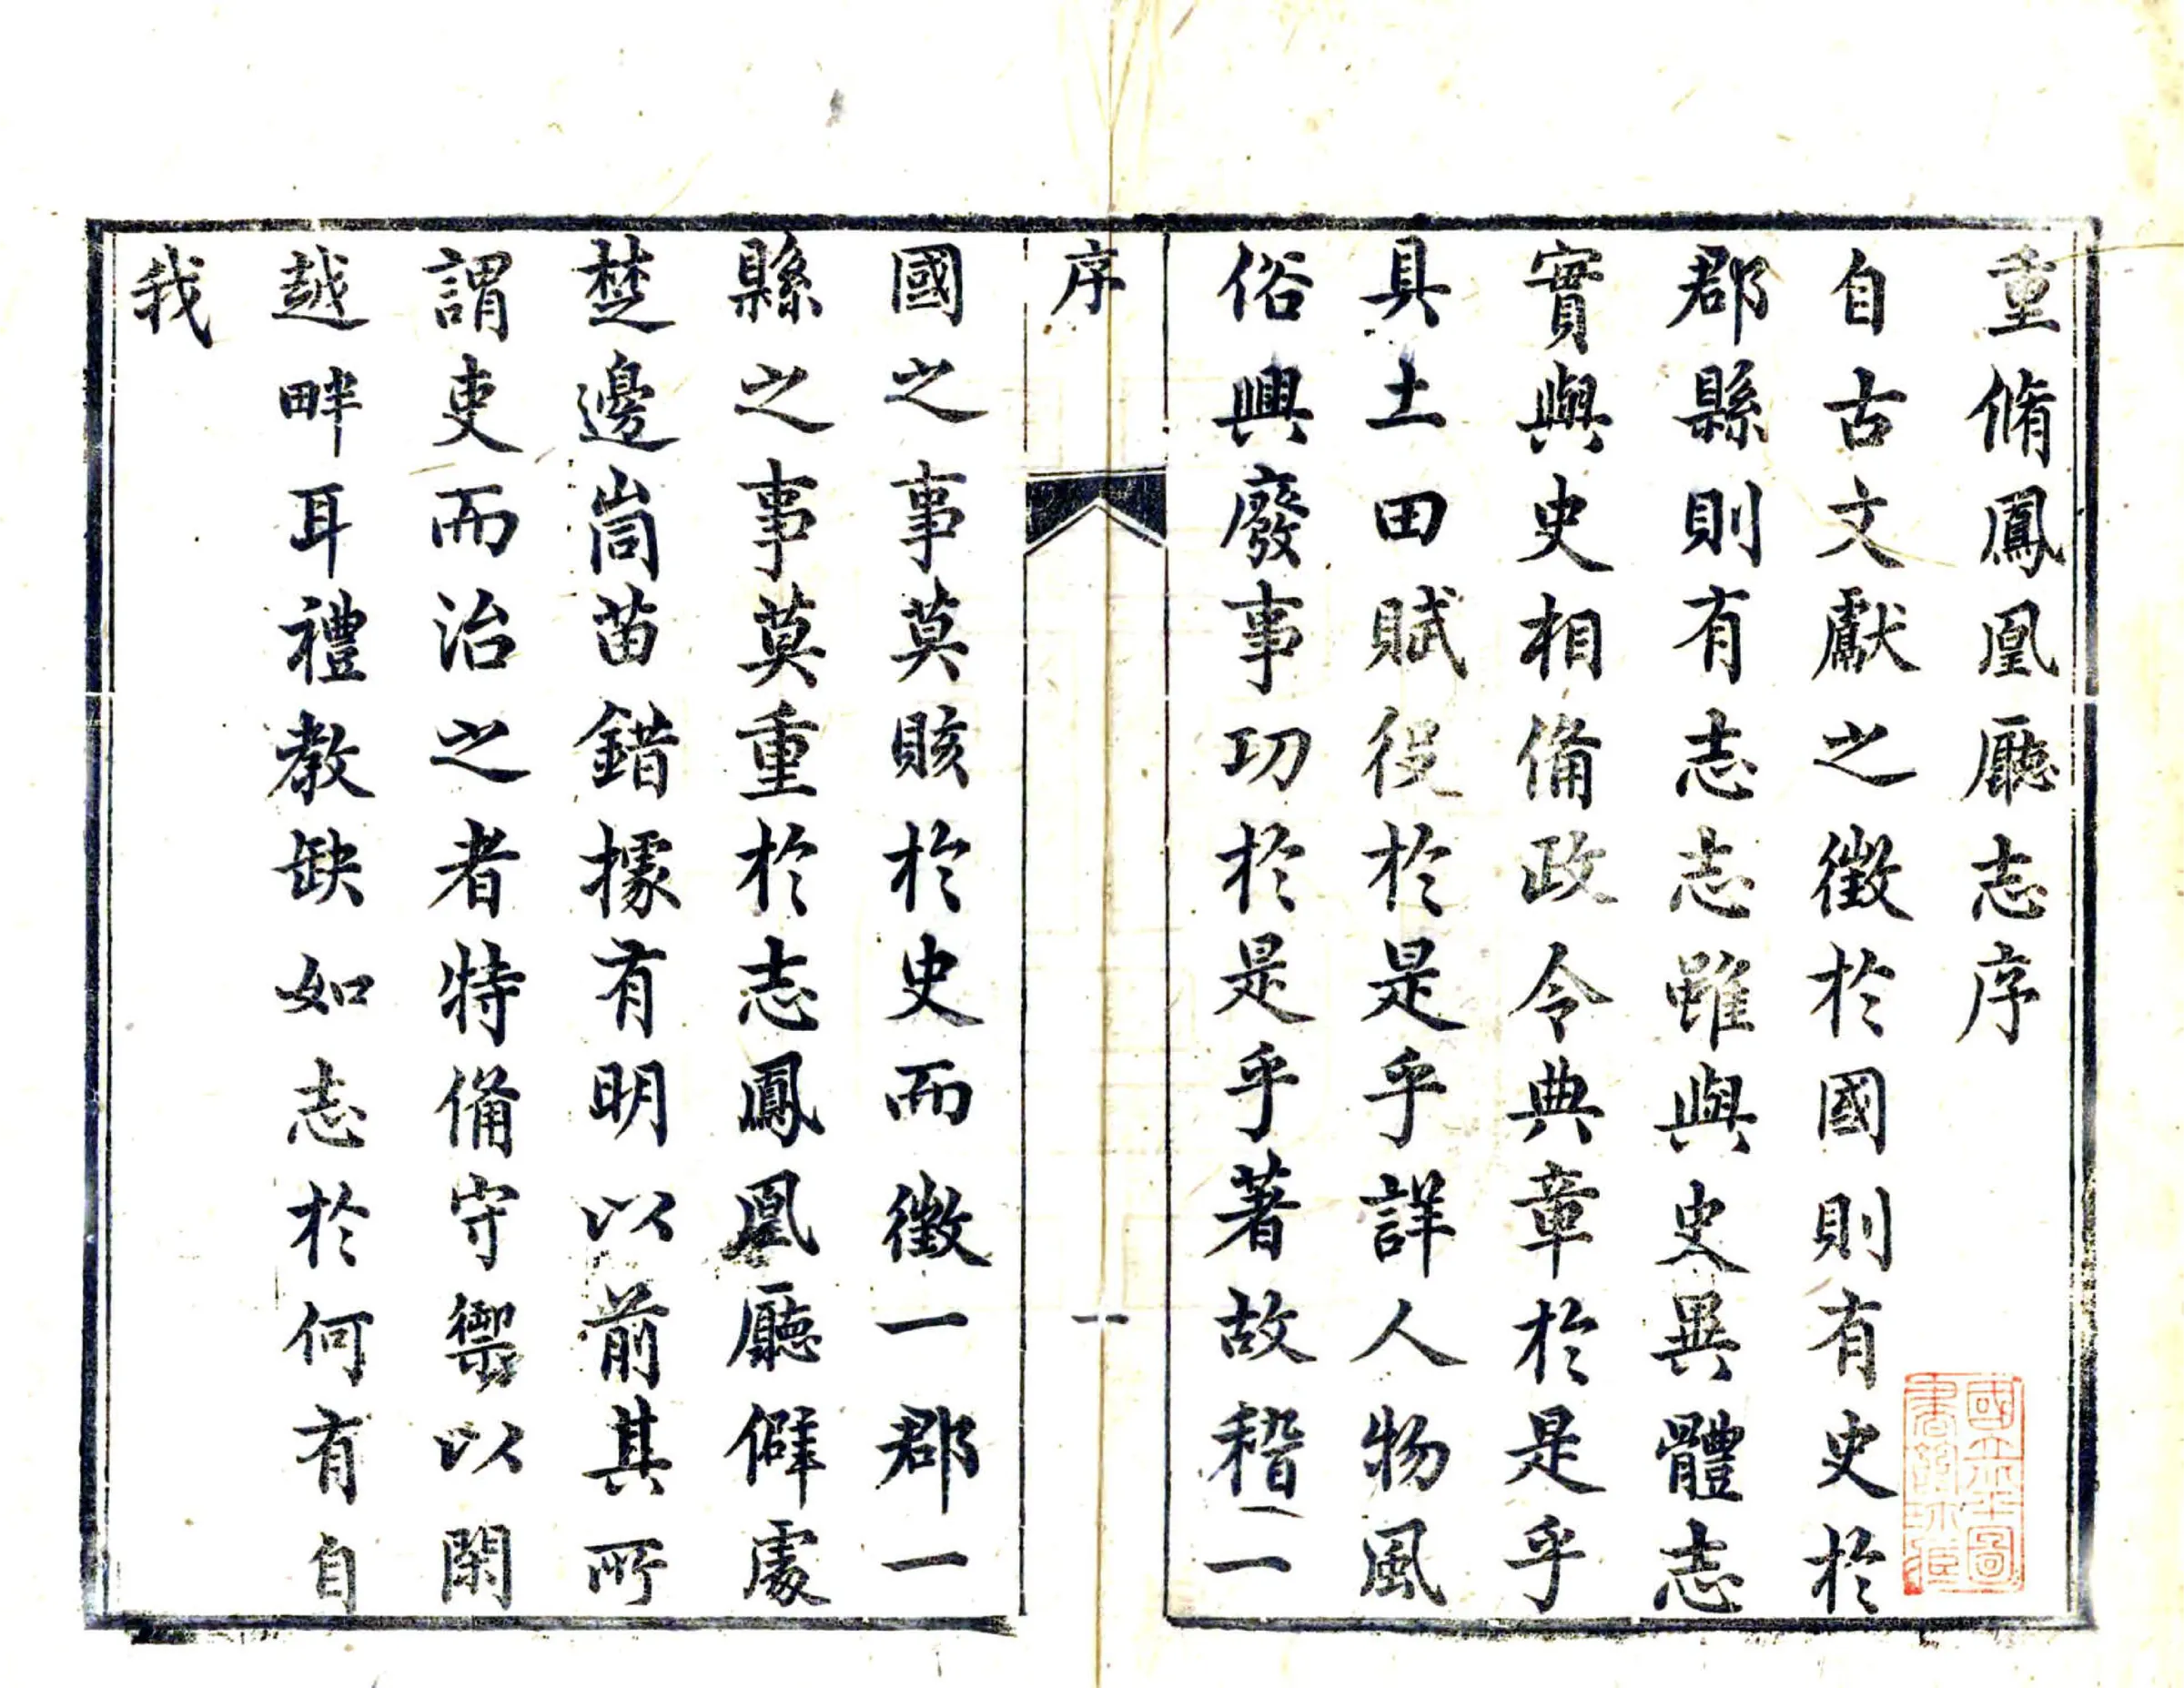 重脩鳳凰廳志序
自古文獻之徵於國則有史於
郡縣則有志志雖與史異體志
實與史相備政令典章於是乎
具土田賦役於是乎詳人物風
俗興廢事功於是乎著故稽一
序
一
國之事莫賅於史而徵一郡一
縣之事莫重於志鳳凰廳僻處
楚邊峝苗錯據有明以前其所
謂吏而治之者特備守禦以閑
越畔耳禮教缺如志於何有自
我